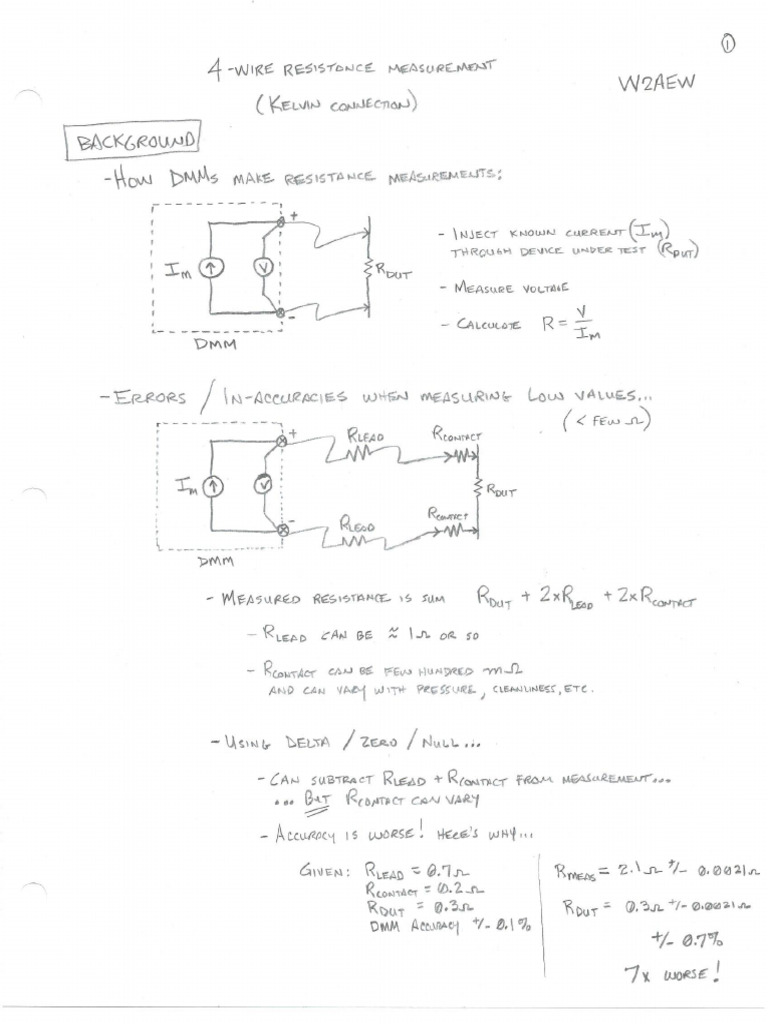 ①
4-WIRE RESISTANCE MEASUREMENT
(KELVIN CONNECTION)
W2AEW
BACKGROUND
- HOW DMMs MAKE RESISTANCE MEASUREMENTS:
+
I_M ↑ V R_DUT
-
DMM
- INJECT KNOWN CURRENT (I_M)
THROUGH DEVICE UNDER TEST (R_DUT)
- MEASURE VOLTAGE
- CALCULATE R = V/I_M
- ERRORS / IN-ACCURACIES WHEN MEASURING LOW VALUES...
(< FEW Ω)
+ R_LEAD R_CONTACT
I_M ↑ V R_DUT
- R_LEAD R_CONTACT
DMM
- MEASURED RESISTANCE IS SUM R_DUT + 2xR_LEAD + 2xR_CONTACT
- R_LEAD CAN BE ≈ 1Ω OR SO
- R_CONTACT CAN BE FEW HUNDRED mΩ
AND CAN VARY WITH PRESSURE, CLEANLINESS, ETC.
- USING DELTA / ZERO / NULL...
- CAN SUBTRACT R_LEAD + R_CONTACT FROM MEASUREMENT...
... BUT R_CONTACT CAN VARY
- ACCURACY IS WORSE! HERE'S WHY...
GIVEN: R_LEAD = 0.7Ω
R_CONTACT = 0.2Ω
R_DUT = 0.3Ω
DMM ACCURACY +/- 0.1%
R_MEAS = 2.1Ω +/- 0.0021Ω
R_DUT = 0.3Ω +/- 0.0021Ω
+/- 0.7%
7x WORSE!